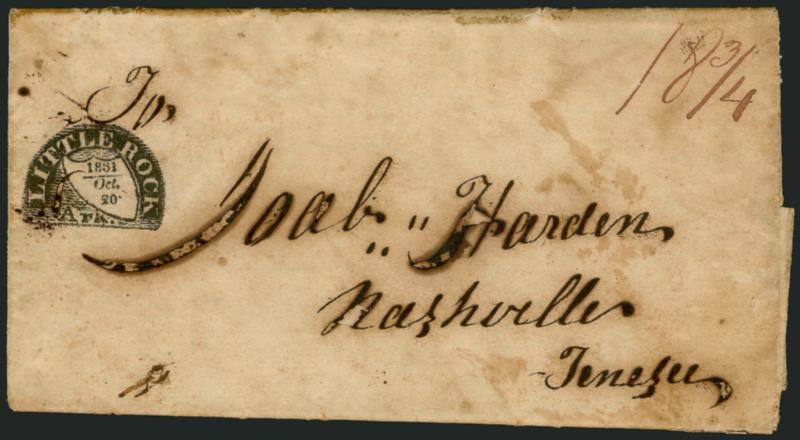 18 3/4
To,
LITTLE ROCK
1831
Oct.
20
Ark.
Joab " " Harden
Nashville
Tenesee